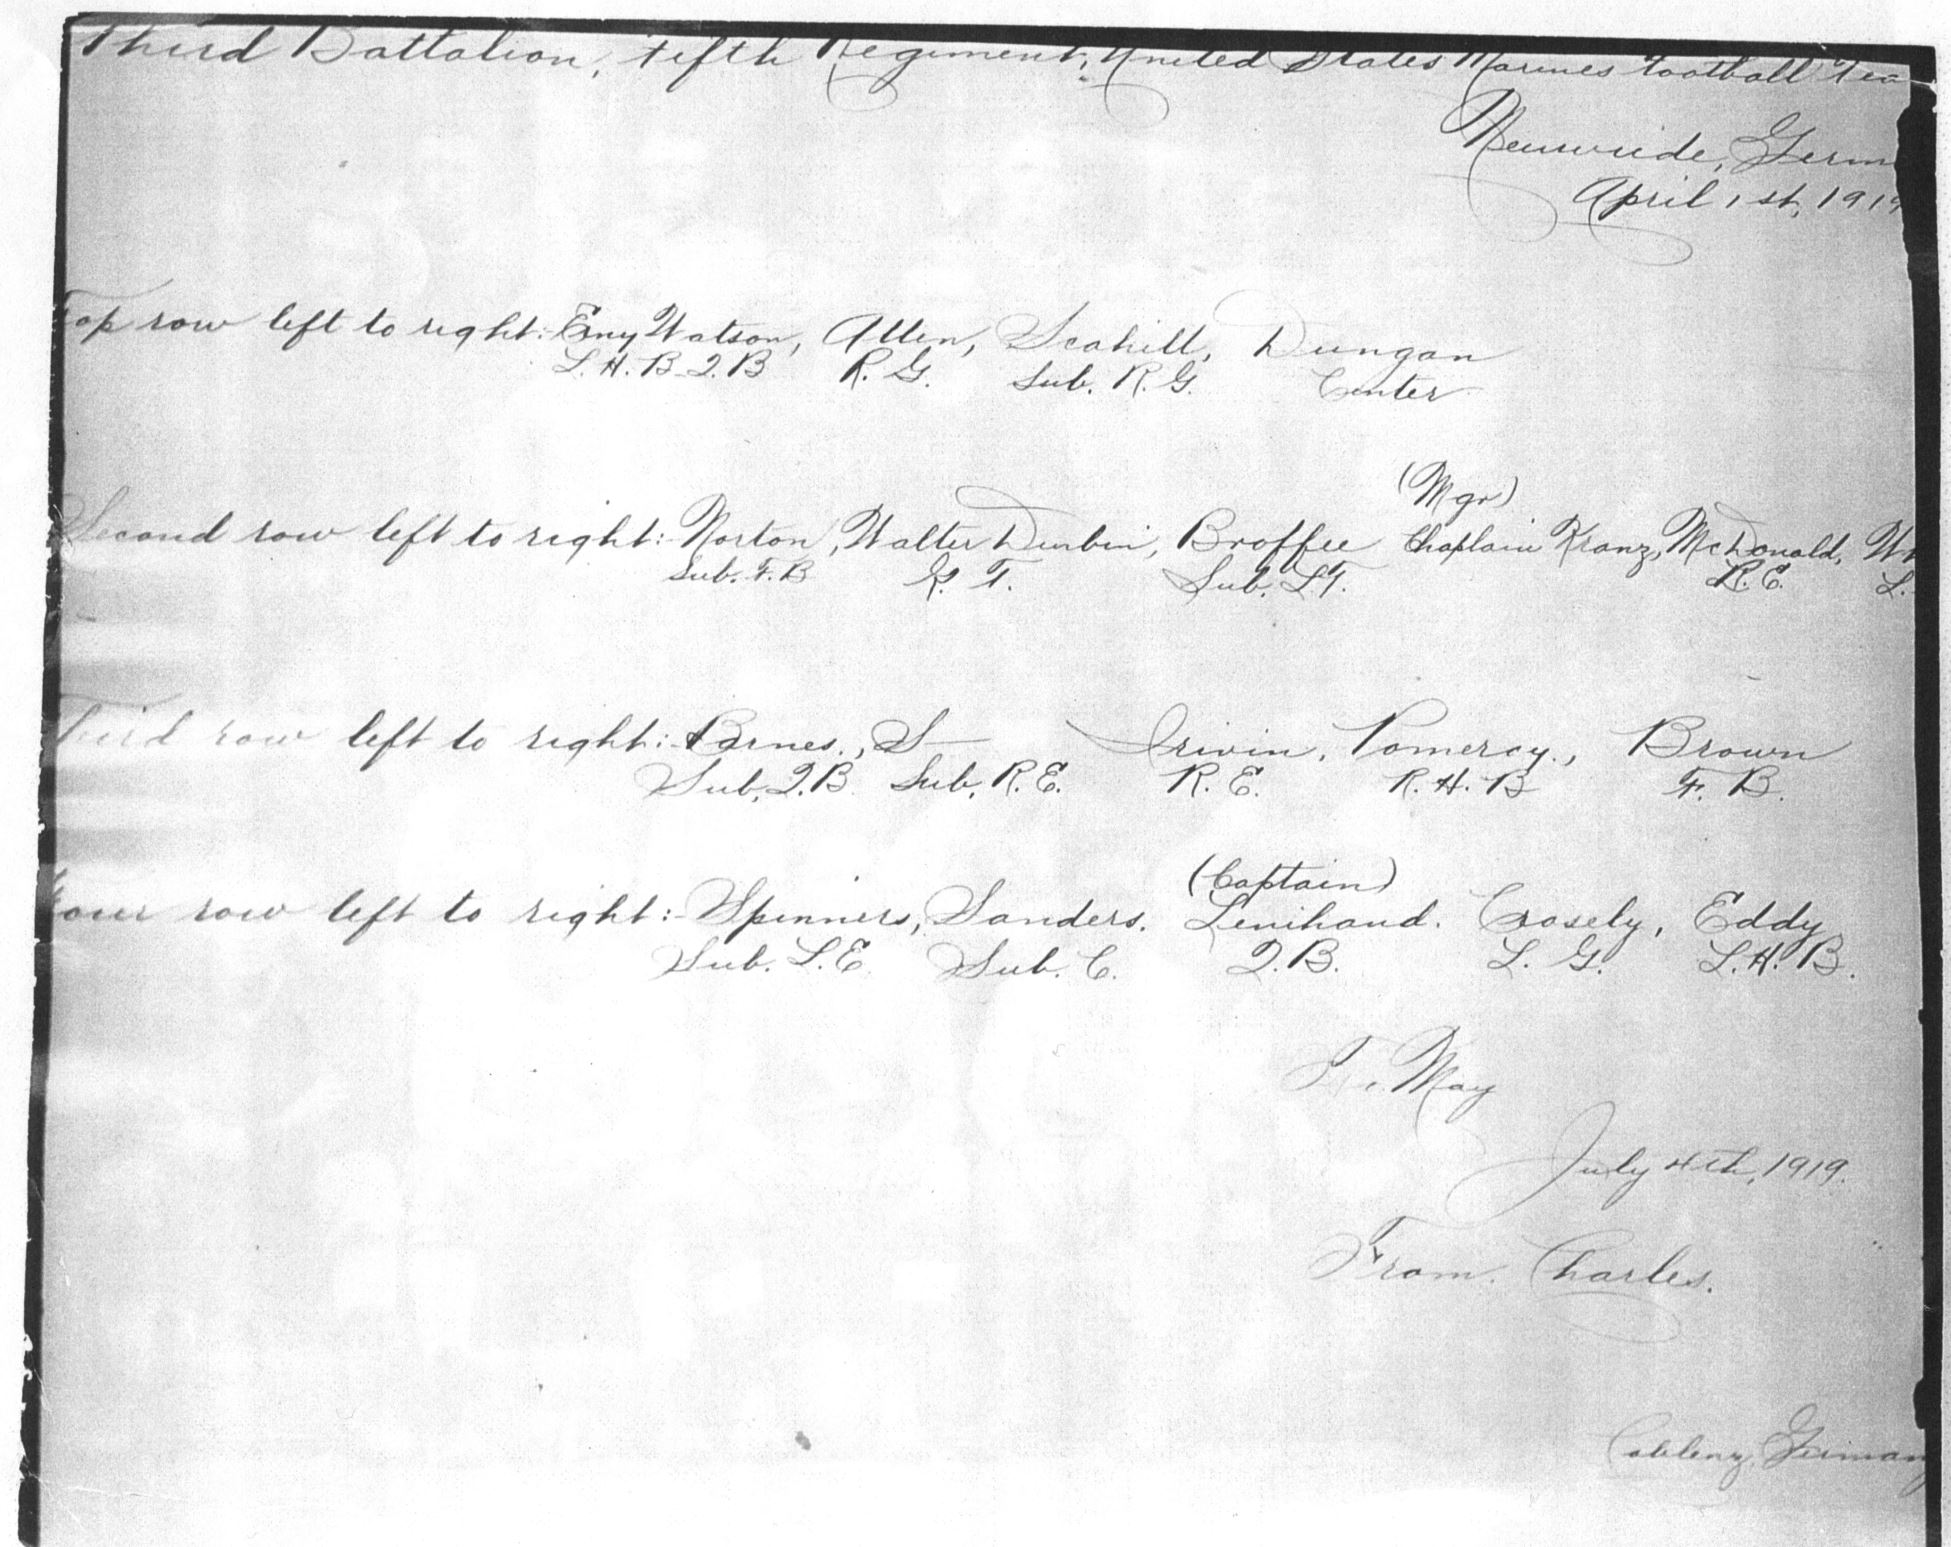 Third Battalion, Fifth Regiment, United States Marines Football Tea
Neuwide, Germ
April 1st, 1919
Top row left to right:- Eny Watson, Allen, Scahill, Dungan
L.H.B. Q.B R.G. Sub. R.G. Center
(Mgr)
Second row left to right:- Norton, Walter Durbin, Broffee Chaplain Kranz, McDonald,
Sub. F.B R.T. Sub. L.T. R.E. L.
Third row left to right:- Barnes., S— Irivin, Pomeroy., Brown
Sub. Q.B Sub. R.E. R.E. R.H.B F.B.
(Captain)
Four row left to right:- Spinners, Sanders. Lenihand. Crosely, Eddy
Sub. L.E. Sub. C. Q.B. L.G. L.H.B.
To May
July 4th, 1919.
From. Charles.
Coblenz, Germany